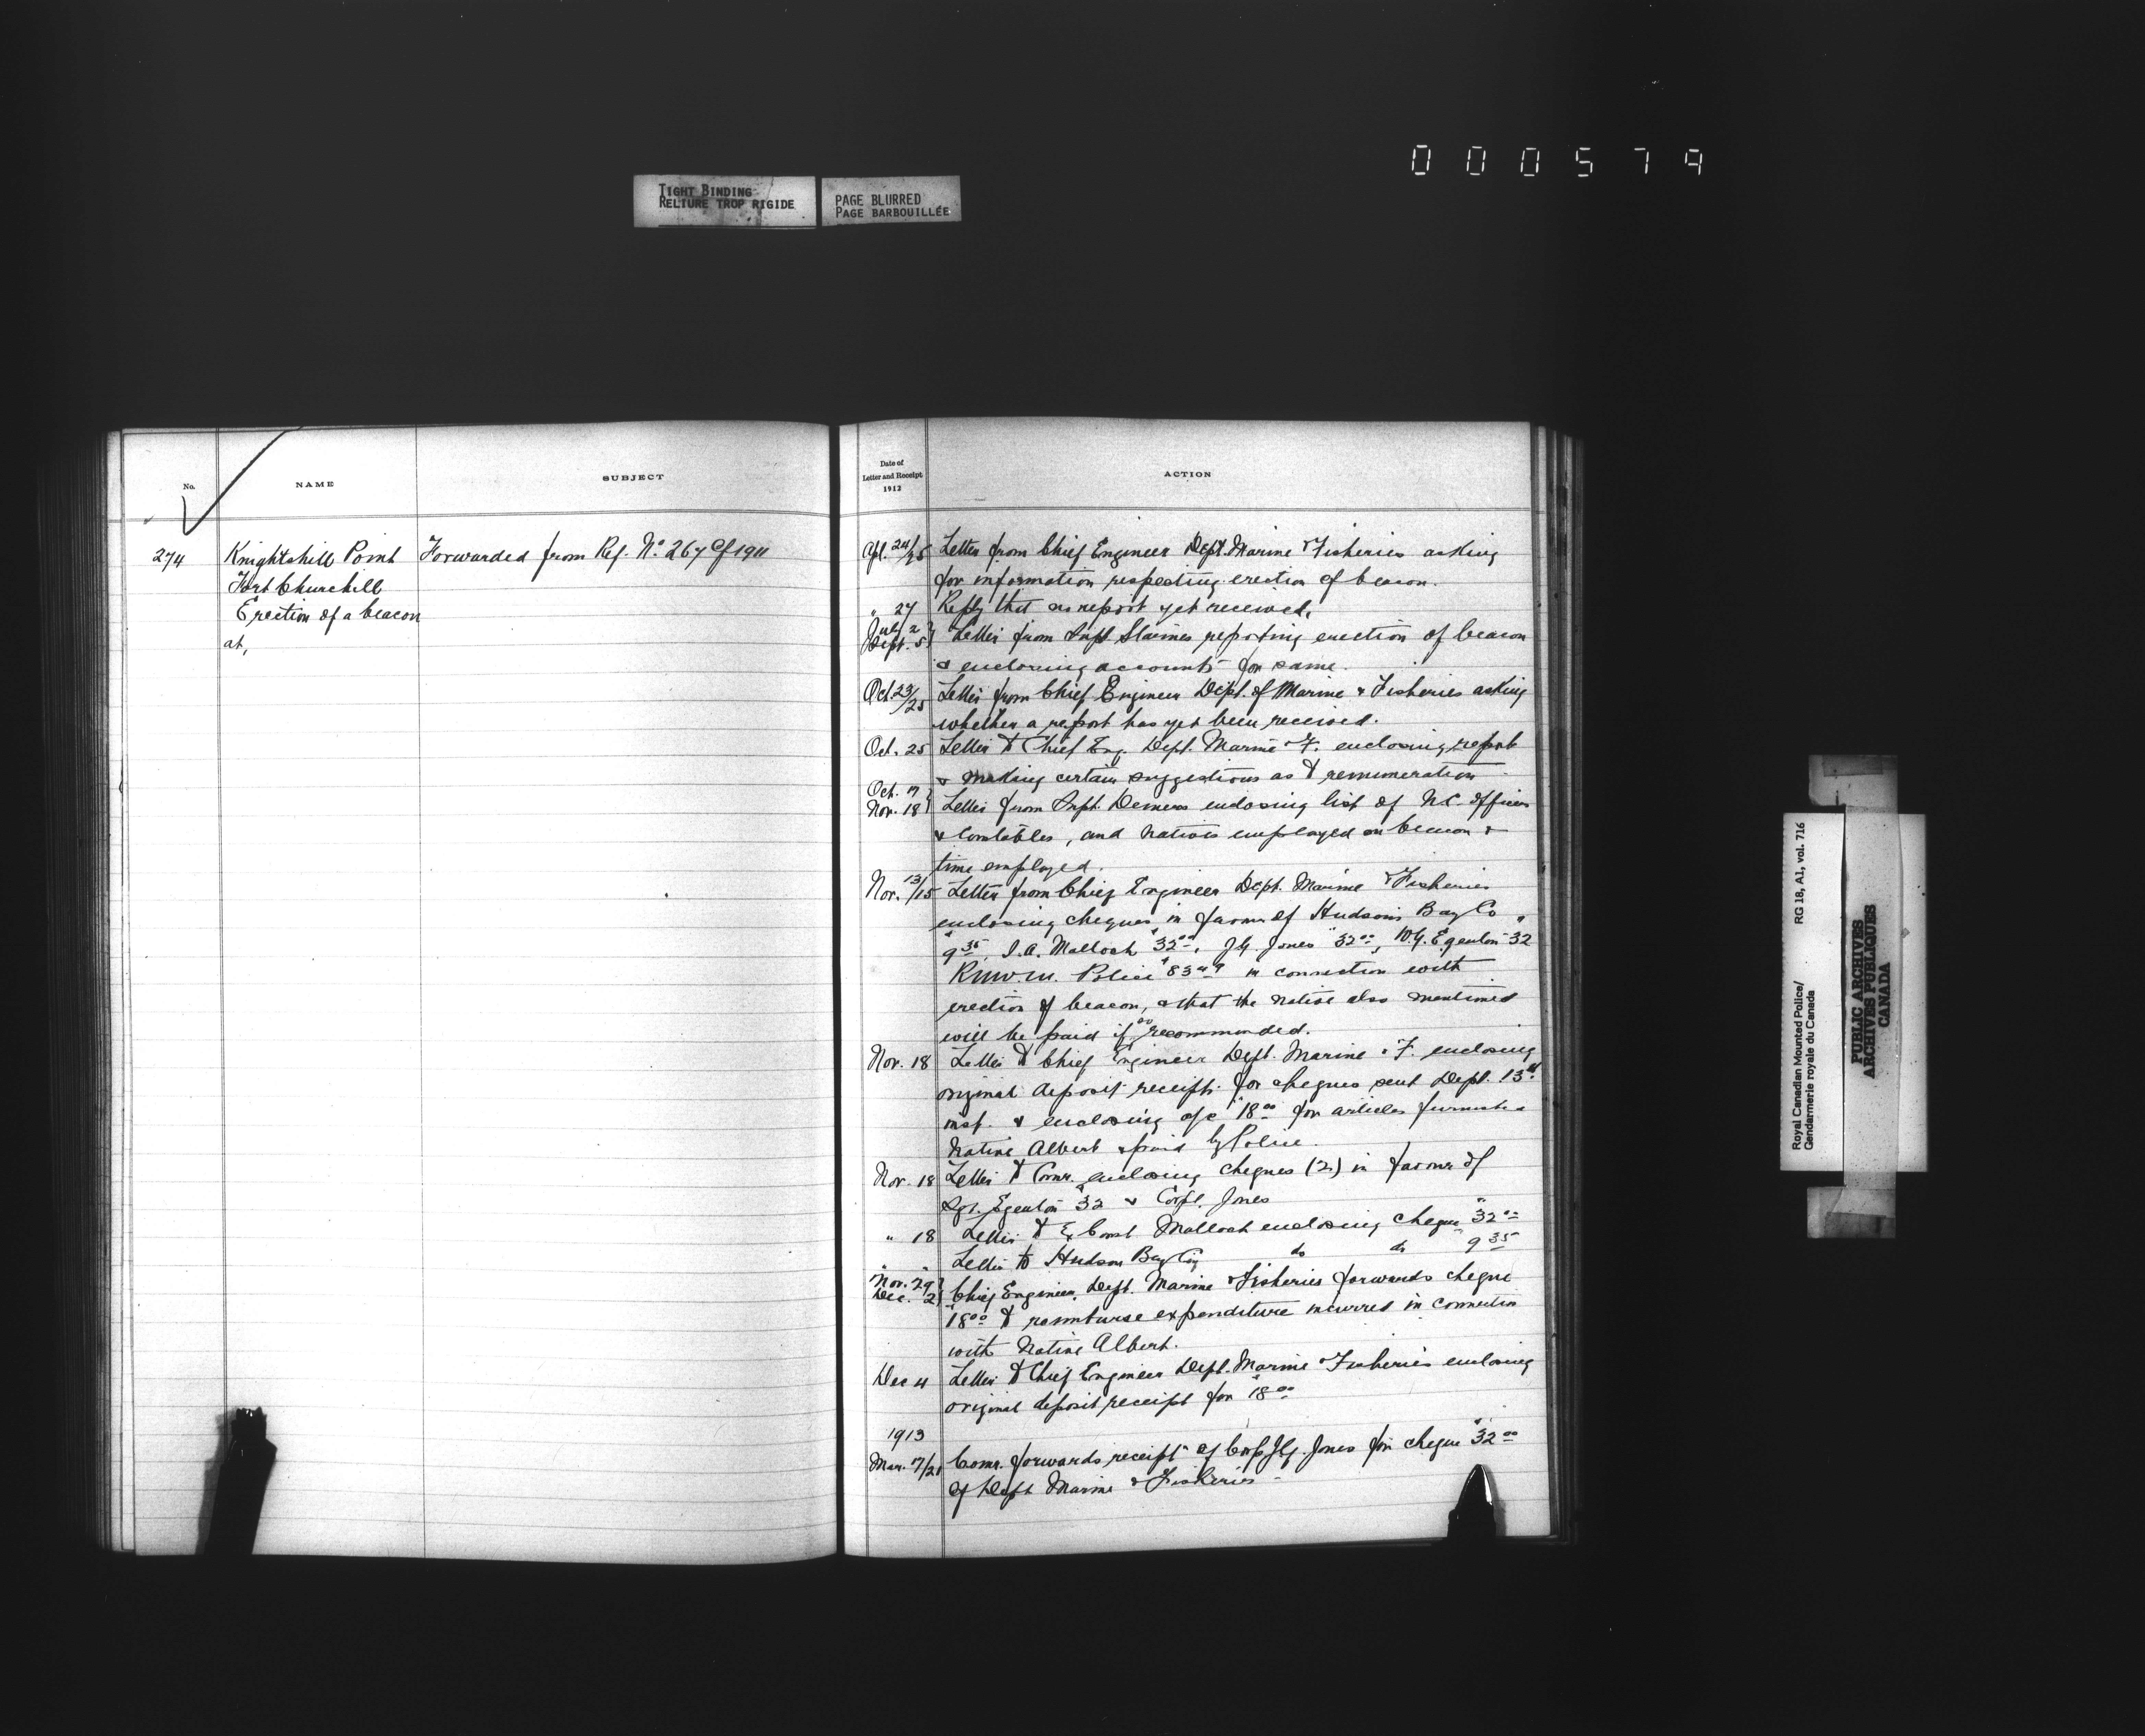 000579
TIGHT BINDING
RELIURE TROP RIGIDE
PAGE BLURRED
PAGE BARBOUILLÉE
No.
NAME
SUBJECT
274
Knightshill Point
Fort Churchill
Erection of a beacon
at,
Forwarded from Ref. No. 267 of 1911
Date of
Letter and Receipt
1912
ACTION
Apl. 24/25 Letter from Chief Engineer Dept. Marine & Fisheries asking
for information respecting erection of beacon.
" 27 Reply that no report yet received.
July 2
Sept. 5 Letter from Supt. Starnes reporting erection of beacon
& enclosing accounts for same.
Oct. 23/25 Letter from Chief Engineer Dept. of Marine & Fisheries asking
whether a report has yet been received.
Oct. 25 Letter to Chief Eng. Dept. Marine & F. enclosing report
& making certain suggestions as to remuneration
Oct. 7
Nov. 18 Letter from Supt. Demers enclosing list of N.C. Officers
& Constables, and natives employed on beacon &
time employed.
Nov. 13/15 Letter from Chief Engineer Dept. Marine & Fisheries
enclosing cheques in favour of Hudson's Bay Co
$9.35, I.A. Malloch $32.00, J.G. Jones $32.00, W.G. Egenton $32
R.N.W.M. Police $83.49 in connection with
erection of beacon, & that the native also mentioned
will be paid if so recommended.
Nov. 18 Letter to Chief Engineer Dept. Marine & F. enclosing
original deposit receipt for cheques sent Dept. 13th
inst. & enclosing a/c $18.00 for articles furnished
Native Albert & paid by Police.
Nov. 18 Letter to Comr. enclosing cheques (2) in favour of
Sgt. Egenton $32 & Corpl. Jones
" 18 Letter to Ex Const Malloch enclosing cheque $32.00
" " Letter to Hudson Bay Coy do do $9.35
Nov. 29
Dec. 2 Chief Engineer, Dept. Marine & Fisheries forwards cheque
$18.00 to reimburse expenditure incurred in connection
with Native Albert.
Dec 4 Letter to Chief Engineer Dept. Marine & Fisheries enclosing
original deposit receipt for $18.00
1913
Mar. 7/21 Comr. forwards receipt of Corp J.G. Jones for cheque $32.00
of Dept Marine & Fisheries
Royal Canadian Mounted Police/ RG 18, A1, vol. 716
Gendarmerie royale du Canada
PUBLIC ARCHIVES
ARCHIVES PUBLIQUES
CANADA